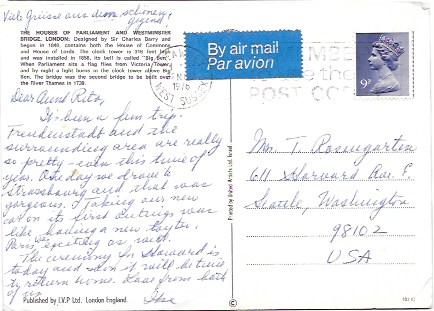 Viele Grüsse aus dem schönen
THE HOUSES OF PARLIAMENT AND WESTMINSTER
BRIDGE, LONDON: Designed by Sir Charles Barry and
begun in 1840, contains both the House of Commons
and House of Lords. The clock tower is 316 feet high
and was installed in 1858, its bell is called "Big Ben".
When Parliament sits a flag flies from Victoria Tower
and by night a light burns in the clock tower above Big
Ben. The bridge was the second bridge to be built over
the River Thames in 1739.
Dear Aunt
It's been a fun trip.
Freudenstadt and the
surrounding area are really
so pretty - even this time of
year. One day we drove to
Strassbourg and that was
gorgeous. Taking our new
car on its first outings was
like having a new toy.
Paris was exciting as well.
The ceremony in is
today and soon it will be time
to return home. Love from both
of us
Ilse
Published by I.V.P Ltd. London England.
Printed by
By air mail
Par avion
1976
WEST SUSSEX
THE
POST CODE
9P
Mrs. T. Rosengarten
611 Harvard Ave. E.
Seattle, Washington
98102
USA